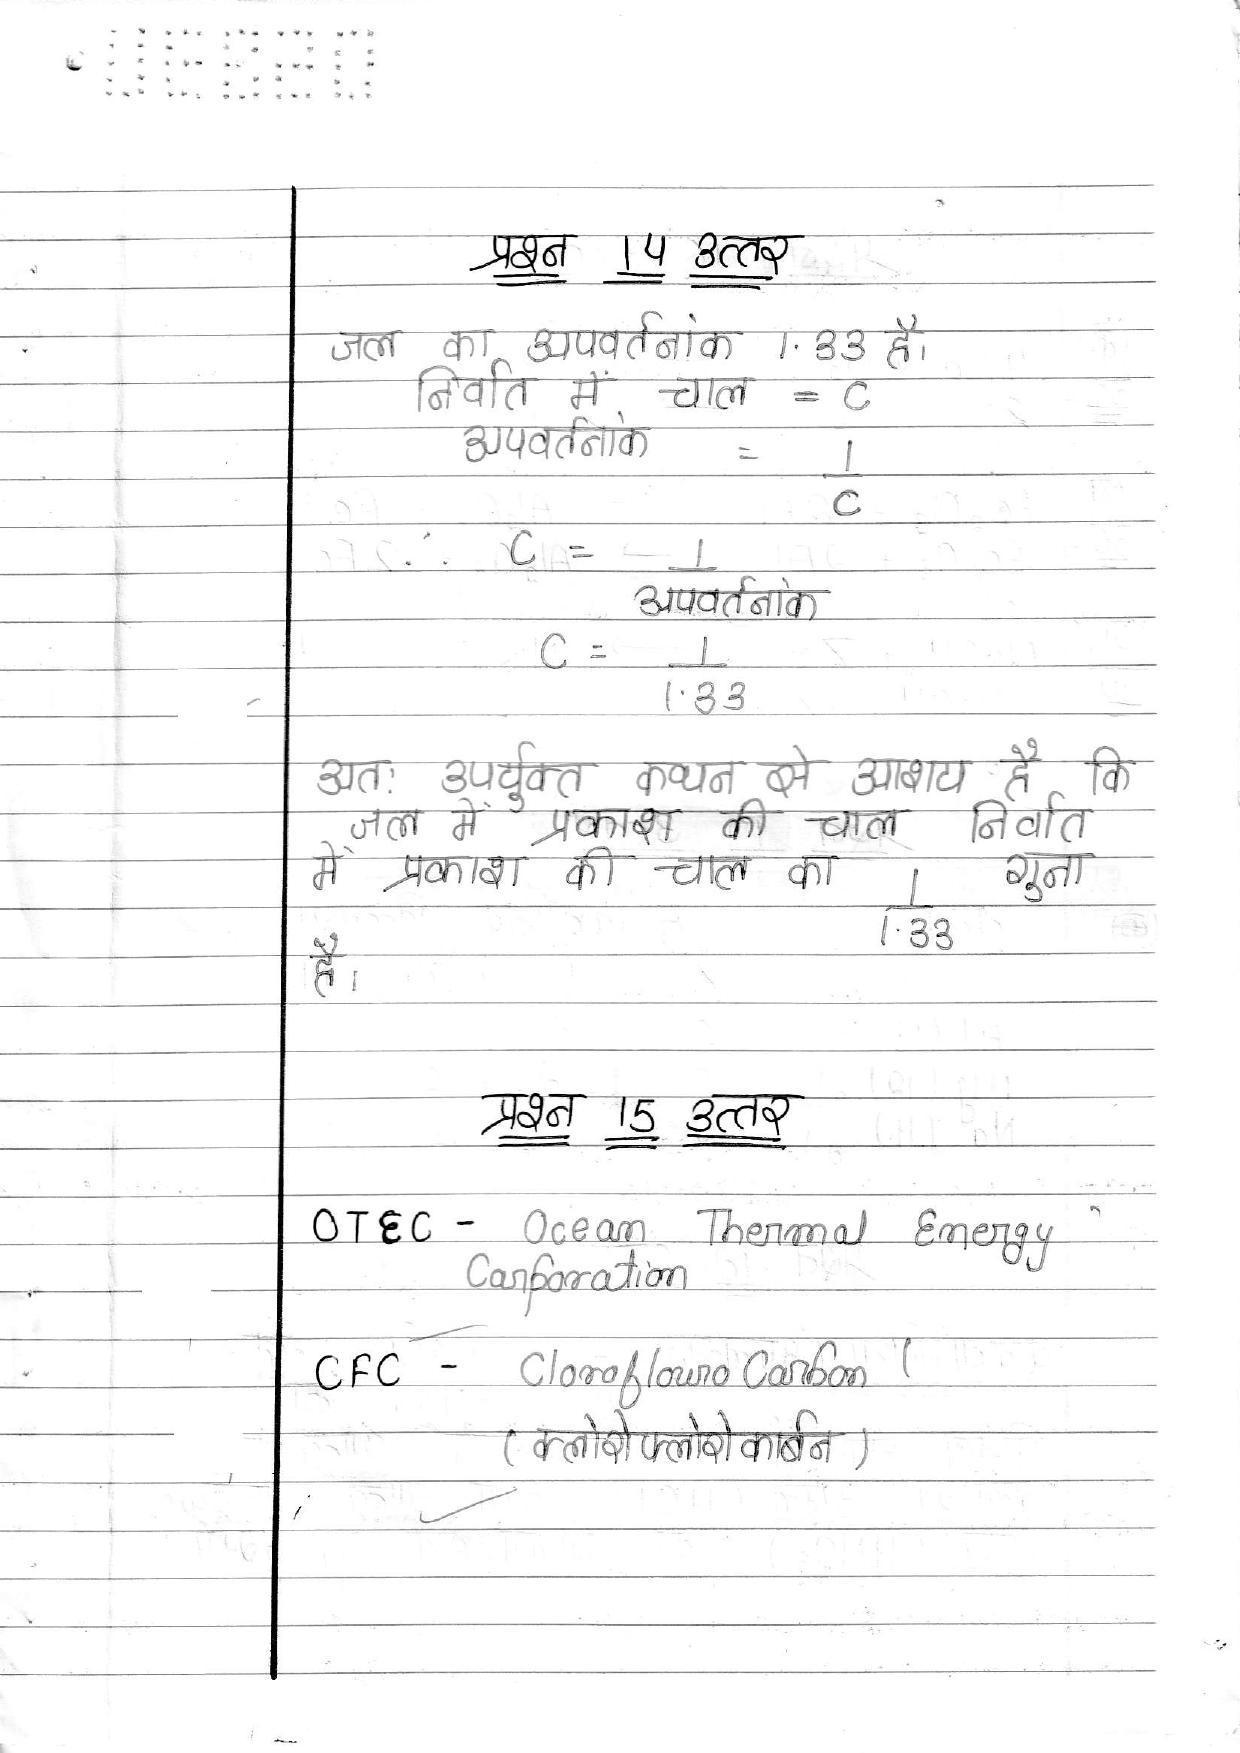 प्रश्न 14 उत्तर
जल का अपवर्तनांक 1.33 है।
निर्वात में चाल = C
अपवर्तनांक = 1
C
∴ C = 1
अपवर्तनांक
C = 1
1.33
अतः उपर्युक्त कथन से आशय है कि
जल में प्रकाश की चाल निर्वात
में प्रकाश की चाल का 1 गुना
1.33
है।
प्रश्न 15 उत्तर
OTEC - Ocean Thermal Energy
Carporation
CFC - Cloroflouro Carbon (
(क्लोरोफ्लोरोकार्बन)